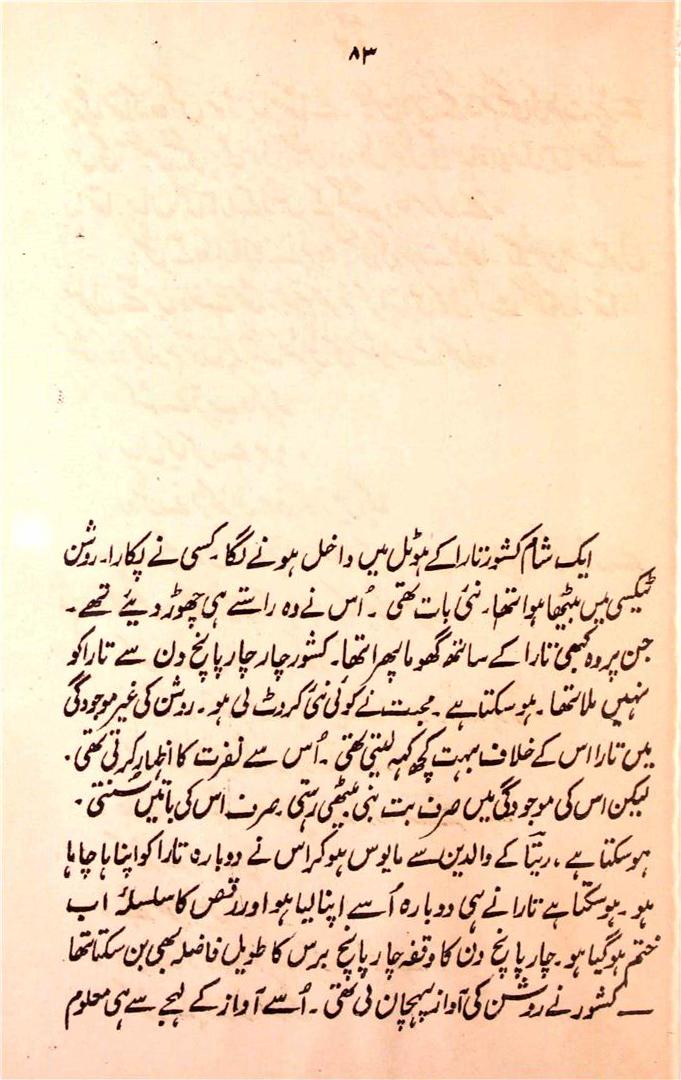 ۸۳
ایک شام کشور تارا کے ہوٹل میں داخل ہونے لگا۔ کسی نے پکارا۔ روشن
ٹیکسی میں بیٹھا ہوا تھا۔ نئی بات تھی ۔ اُس نے وہ راستے ہی چھوڑ دیئے تھے ۔
جن پر وہ کبھی تارا کے ساتھ گھوما پھرا تھا۔ کشور چار چار پانچ دن سے تارا کو
نہیں ملا تھا ۔ ہو سکتا ہے ۔ محبت نے کوئی نئی کروٹ لی ہو ۔ روشن کی غیر موجودگی
میں تارا اس کے خلاف بہت کچھ کہہ لیتی تھی ۔ اُس سے نفرت کا اظہار کرتی تھی ۔
لیکن اس کی موجودگی میں صرف بت بنی بیٹھی رہتی ۔ صرف اس کی باتیں سُنتی ۔
ہو سکتا ہے ، ریتا کے والدین سے مایوس ہو کر اس نے دوبارہ تارا کو اپنانا چاہا
ہو ۔ ہو سکتا ہے تارا نے ہی دوبارہ اُسے اپنا لیا ہو اور رقص کا سلسلہ اب
ختم ہو گیا ہو ۔ چار پانچ دن کا وقفہ چار پانچ برس کا طویل فاصلہ بھی بن سکتا تھا
— کشور نے روشن کی آواز پہچان لی تھی ۔ اُسے آواز کے لہجے سے ہی معلوم